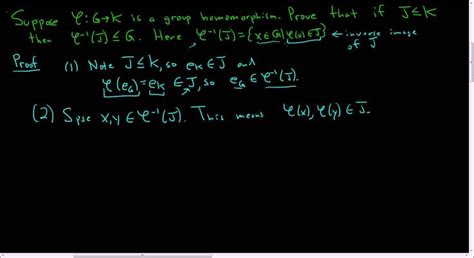 Suppose φ: G→K is a group homomorphism. Prove that if J≤K
then φ⁻¹(J) ≤ G. Here φ⁻¹(J) = {x∈G | φ(x)∈J} ← inverse image of J
Proof (1) Note J≤K, so e_K ∈ J and
φ(e_G) = e_K ∈ J, so e_G ∈ φ⁻¹(J).
(2) Spse x,y ∈ φ⁻¹(J). This means φ(x), φ(y) ∈ J.